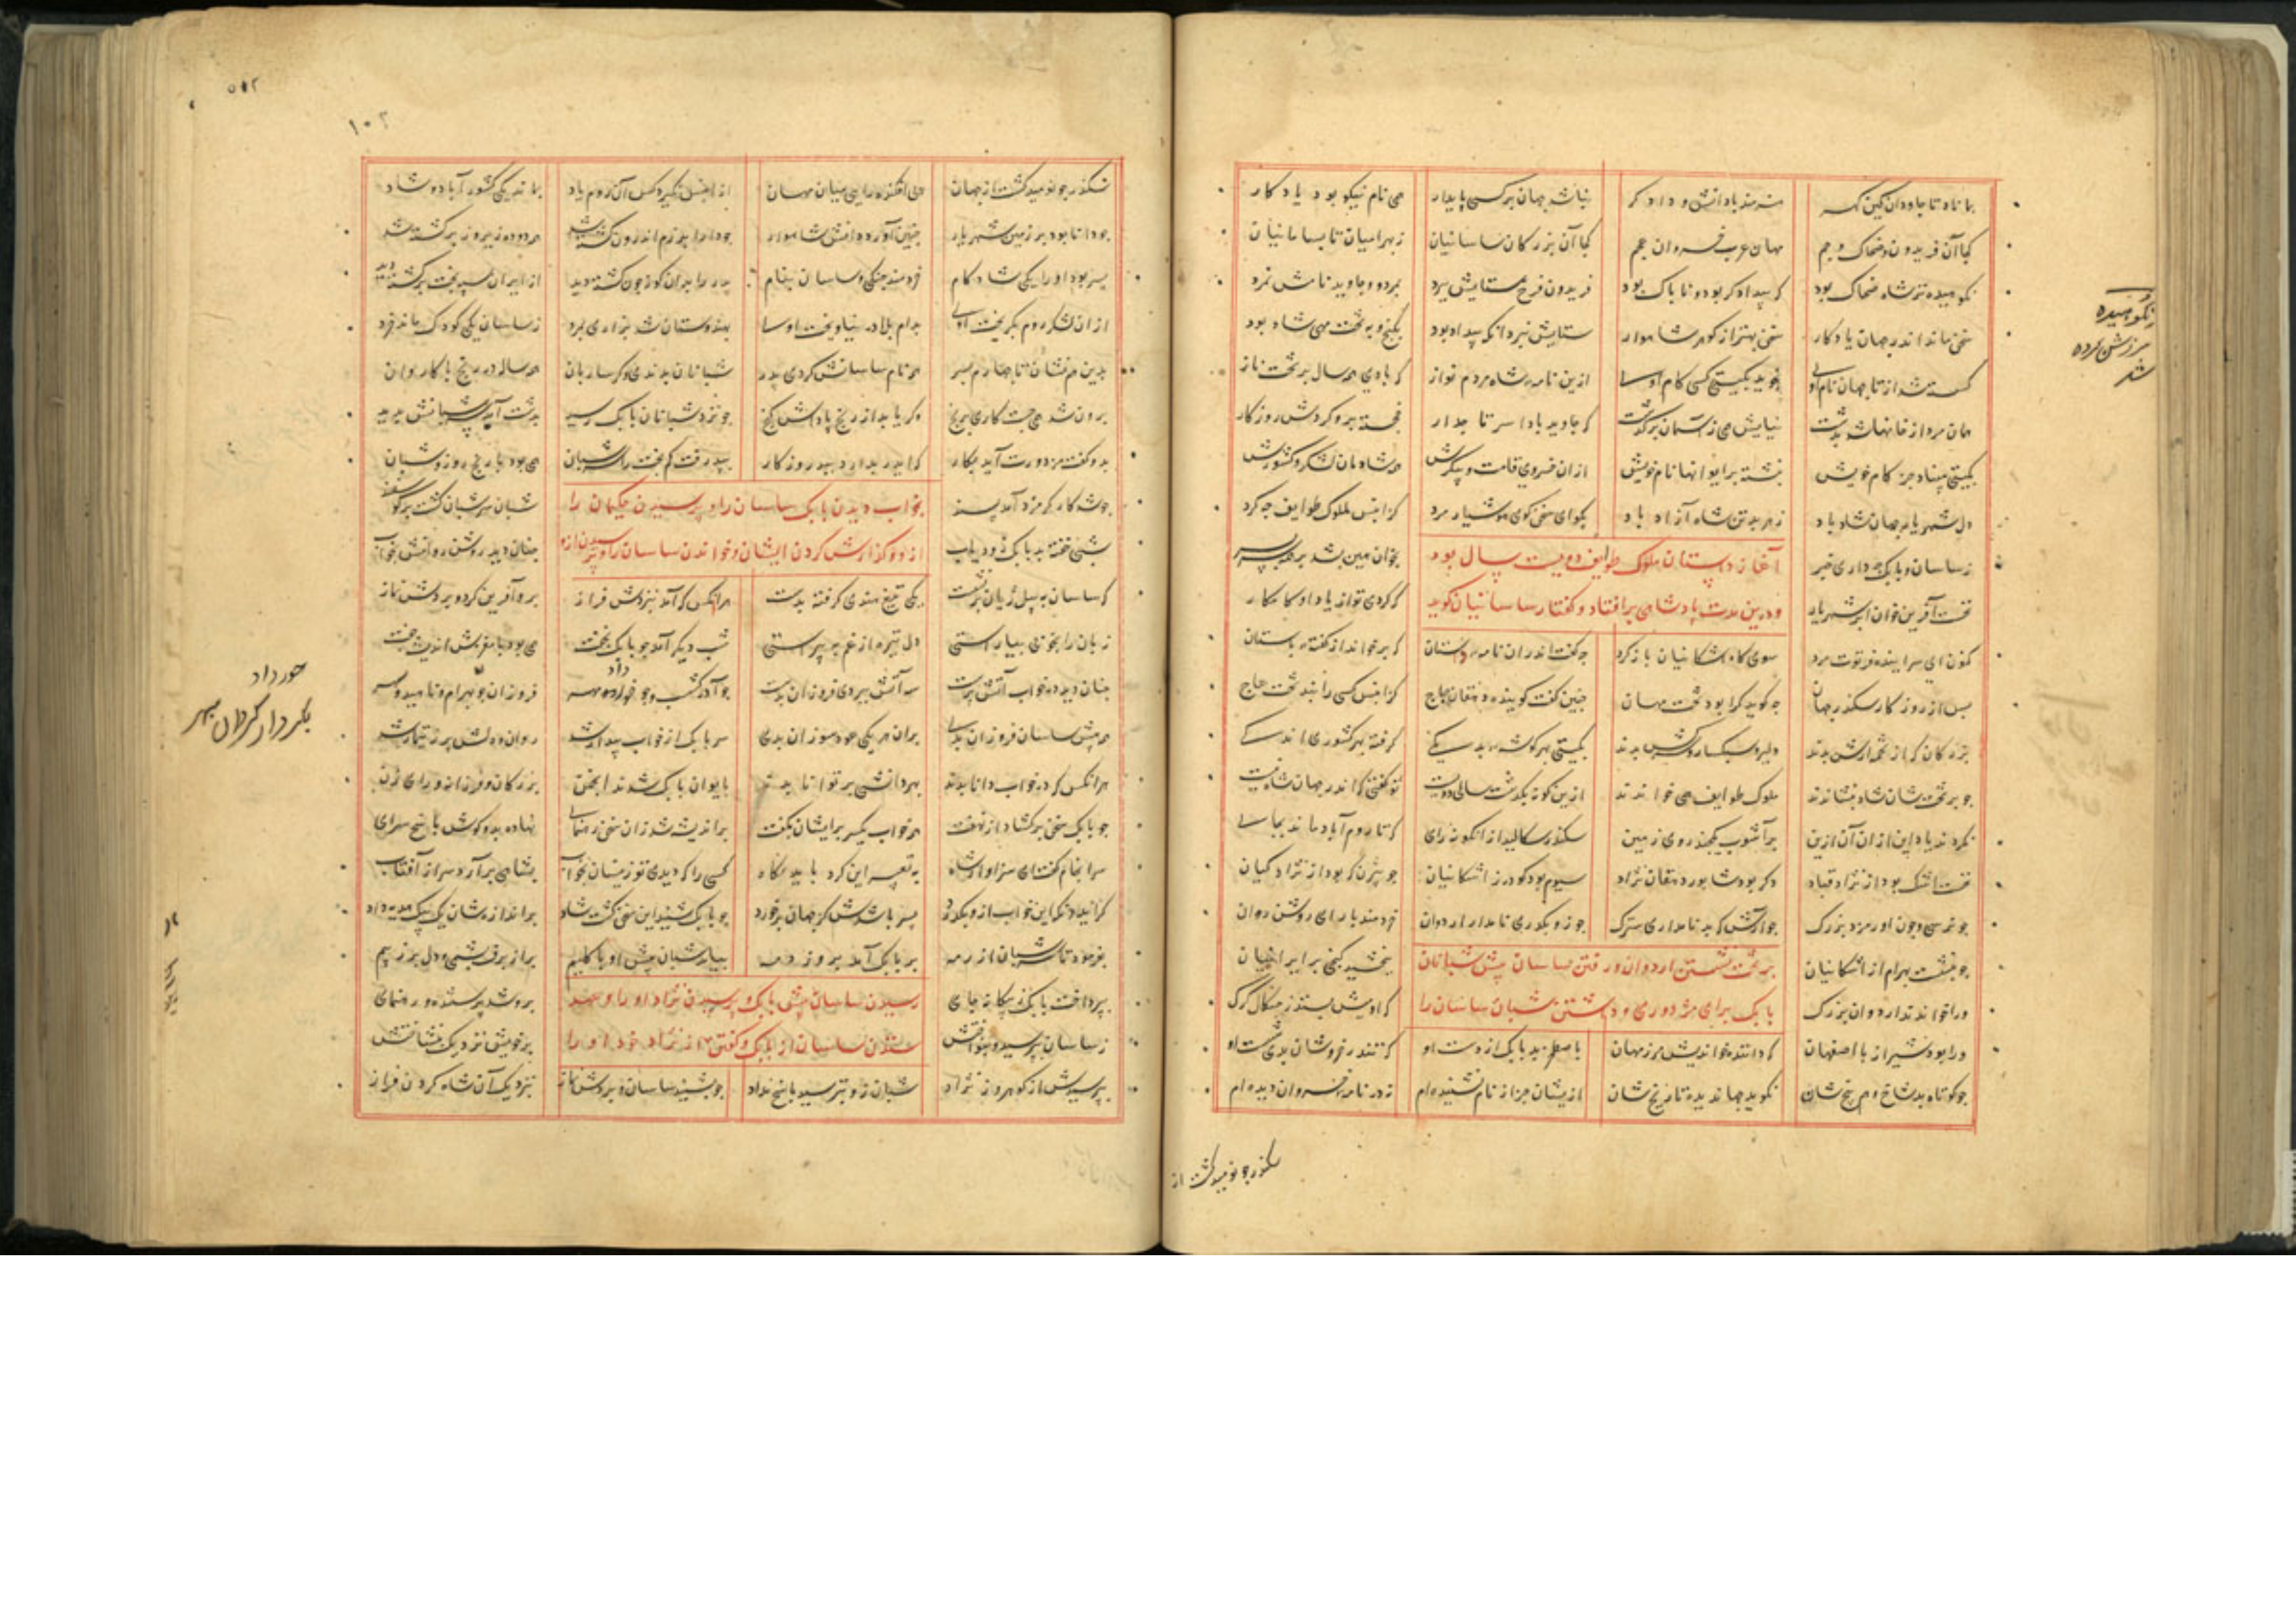 بماناد تا جاودان این کهر هنرمند با دانش و دادکر نباشد جهان بر کسی پایدار همی نام نیکو بود یادکار
کجا آن فریدون و ضحاک و جم مهان عرب خسروان عجم کجا آن بزرکان ساسانیان ز بهرامیان تا بسامانیان
نکوهیده تر شاه ضحاک بود که بیدادکر بود و ناپاک بود فریدون فرخ ستایش ببرد بمرد و جاوید نامش نمرد
سخن ماند اندر جهان یادکار سخن بهتر از کوهر شاهوار ستایش نبرد آنکه بیداد بود بکنج و به تخت مهی شاد بود
کسسته شد از تاجهان نام اوی نجوید بکیتی کسی کام اوی ازین نامه شاه مردم نواز که بادی همه سال بر تخت ناز
همان مردم از خانها شد بدشت نیایش همی ز آسمان برکذشت که جاوید بادا سر تاجدار خجسته برو کردش روزکار
بکیتی مبیناد جز کام خویش نبشته بر ایوانها نام خویش ازان خسروی قامت و پیکرش همه شادمان لشکر و کشورش
دل شهریار جهان شاد باد ز هر بد تن شاه آزاد باد بکو ای سخن کوی هوشیار مرد کز انپس ملوک طوایف چه کرد
آغاز داستان ملوک طوایف دویست سال بود
ز ساسان و بابک چه داری خبر بخوان همین بشد برهمه سر بسر
ودرین مدت پادشاهی برافتاد و کفتار ساسانیان کوید
نخست آفرین خوان ابر شهریار که کردی تو از یاد او کامکار
کنون ای سراینده فرتوت مرد سوی کاه اشکانیان بازکرد چه کفت اندران نامه راستان که برخواند از کفته باستان
پس از روزکار سکندر جهان چه کوید کرا بود تخت مهان چنین کفت کوینده دهقان چاچ کز انپس کسی را نبد تخت عاج
بزرکان که از تخم آرش بدند دلیر و سبکسار و سرکش بدند بکیتی بهر کوشه بر یکی کرفته بهر کشوری اندکی
چو بر تختشان شاد بنشاندند ملوک طوایف همی خواندند ازین کونه بکذشت سالی دویست تو کفتی که اندر جهان شاه نیست
نکردند یاد این ازان آن ازین برآسوب یکچند روی زمین سکندر سکالید از انکونه رای که تا روم آباد ماند بجای
نخست اشک بود از نژاد قباد دکر بود شاپور دهقان نژاد سیوم بود کودرز اشکانیان چو بیژن که بود از نژاد کیان
چو نرسی و چون اورمزد بزرک چو آرش که بد نامداری سترک چو زو بکذری نامدار اردوان خردمند با رای و روشن روان
بر تخت نشستن اردوان و رفتن ساسان پیش شبانان
چو بنشست بهرام از اشکانیان ببخشید کنجی بر ایرانیان
بابک برای مزدوری و داشتن شبان ساسان را
ورا خواندند اردوان بزرک که از میش بستد ز چنکال کرک
ورا بود شیراز با اصفهان که داننده خواندیش مرز مهان باصطخر بد بابک از دست او که تندر خروشان بدی شست او
چو کوتاه بد شاخ و هم بیخ شان نکوید جهاندیده تاریخ شان ازیشان جز از نام نشنیده ام نه در نامه خسروان دیده ام
نکوهیده
سرزنش کرده شد
سکندر چو نومید کشت از
۱۰۳
سکندر چو نومید کشت از جهان همی افکند رایی میان مهان از انپس نکیرد کسی آن روم یاد بماند یکی کشور آباد و شاد
چو دانا بود بر زمین شهریار چنین آورد دانش شاهوار چو دارا برزم اندرون کشته شد همه دوده زیر و زبر کشته شد
پسر بود او را یکی شادکام خردمند جنکی و ساسان بنام پدر را بدان کونه چون کشته دید از ایران سر بخت برکشته دید
ازان لشکر روم بکریخت اوی بدام بلا در نیاویخت اوی بهندوستان شد بزاری بمرد ز ساسان یکی کودک ماند خرد
بدین هم نشان تا چهارم پسر همه نام ساسانش کردی پدر شبانان بدندی دکر ساربان همه ساله در رنج با کاروان
برون شد همی جست کاری برنج مکر یابد از رنج پاداش کنج چو نزد شبانان بابک رسید بدشت آمد و سرشبانش بدید
بدو کفت مزدورت آید بکار که ایدر بدارد ببد روزکار بپذرفت کم بخت را سرشبان همی بود با رنج روز و شبان
خواب دیدن بابک ساسان را و پرسیدن حکیمان را
چو شد کارکر مرد آمد پسند شبان سرشبان کشت بر کوسفند
شبی خفته بد بابک زودیاب چنان دید روشن روانش بخواب
که ساسان به پیل ژیان برنشست یکی تیغ هندی کرفته بدست هر آنکس که آمد بنزدش فراز برو آفرین کرد و بردش نماز
زبان را بخوبی بیاراستی دل تیره از غم بپیراستی شب دیکر آمد چو بابک بخفت همی بود با مغزش اندیشه جفت
چنان دید در خواب کاتش پرست سه آتش ببردی فروزان بدست چو آذرکشسب و چو خرداد و مهر فروزان چو بهرام و ناهید و مهر
همه پیش ساسان فروزان بدی بران هر یکی عود سوزان بدی سر بابک از خواب بیدار شد روان و دلش پر ز تیمار شد
هر آنکس که در خواب دانا بدند بهر دانشی بر توانا بدند بایوان بابک شدند انجمن بزرکان و فرزانه و رای زن
چو بابک سخن برکشاد از نهفت همه خواب یکسر بر ایشان بکفت پراندیشه شد زان سخن رهنمای نهاده بدو کوش پاسخ سرای
سرانجام کفت ای سزاوار شاه به تعبیر این کرد باید نکاه کسی را که دیدی تو زینسان بخواب بشاهی برآرد سر از آفتاب
کر ایدونکه این خواب ازو بکذرد پسر باشدش کز جهان برخورد چو بابک شنید این سخن کشت شاد بر اندازه شان یک بیک هدیه داد
بفرمود تا سرشبان از رمه بر بابک آمد بروز دمه بیامد شبان پیش او با کلیم پر از برف پشمین و دل پر ز بیم
رسیدن ساسان پیش بابک و پرسیدن نژاد او را و عهد
بپرداخت بابک ز بیکانه جای بدر شد پرستنده و رهنمای
ستدن ساسان از بابک و کفتن از نژاد خود او را
ز ساسان بپرسید و بنواختش بر خویش نزدیک بنشاختش
بپرسیدش از کوهر و ز نژاد شبان زو بترسید پاسخ نداد
خورداد
بکردار کردان سپهر